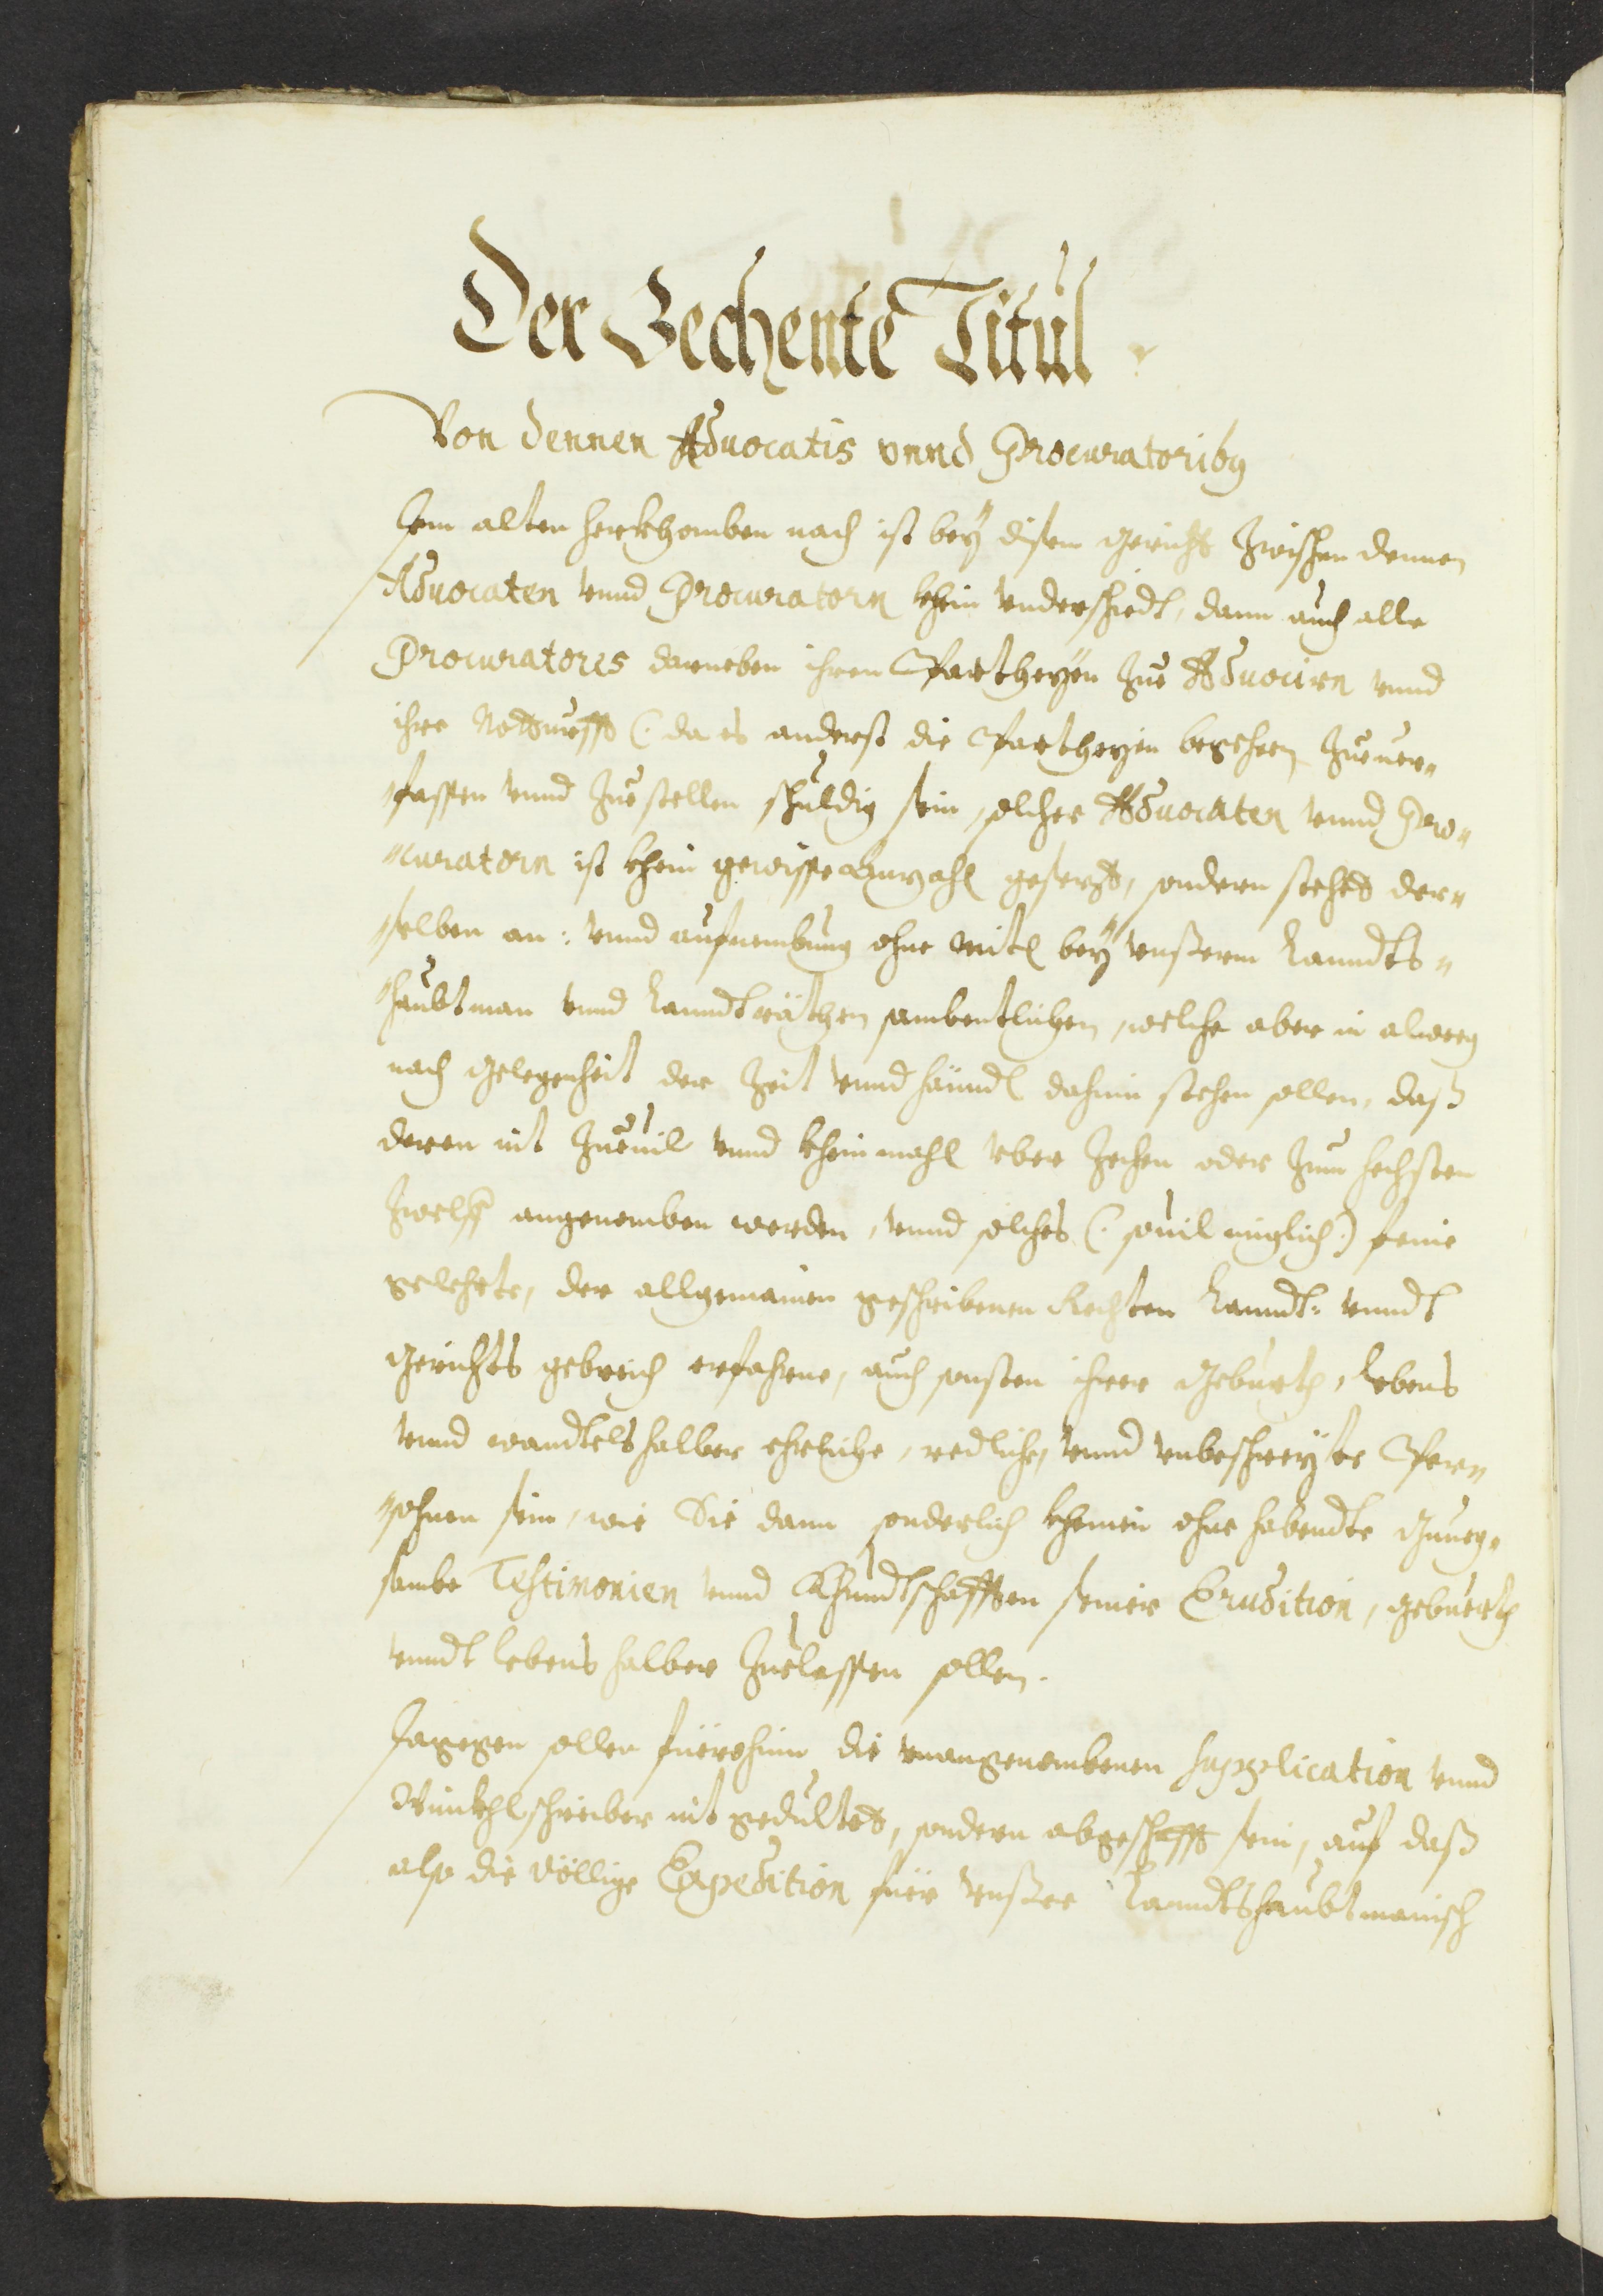 Der Zechente Titul
Von dennen Aduocatis vnnd Procuratoribꝫ
Dem alten herkhomben nach ist bey disem gericht zwischen dennen
Aduocaten vnnd Procuratorn khein vnderschiedt, dann auch alle
Procuratores darneben ihren Partheyen zue Aduocirn vnnd
ihre Notdurfft (: da es anderst die Partheyen begehren zuuer„
„fassen vnnd zuestellen schuldig sein, solcher Aduocaten vnnd Pro„
„curatorn ist khein gewisse Anzahl gesezt, sondern stehet der„
„selben an: vnnd aufnembung ohne mitl bey vnserm Lanndts„
„haubtman vnnd Lanndträthen sambentlichen, welche aber in alweeg
nach gelegenheit der Zeit vnnd händl dahin sechen sollen, daß
deren nit zueuil vnnd kheinmahl vber zechen oder zum hechsten
zwelff angenomben werden, vnnd solches (: souil müglich :) feine
gelehrte, der allgemainen geschribenen Rechten Lanndt: vnndt
gerichts gebreich erfahrne, auch sonsten ihrer geburth, Lebens
vnnd wandtels halber ehrliche, redliche, vnnd vnbeschreyte Per„
„sohnen sein, wie Sie dann sonderlich kheinen ohne habendte gnueg„
sambe Testimonien vnnd Khundtschafften seiner Erudition, geburth
vnndt lebens halber zuelassen sollen.
Dagegen sollen füerohinn die vnangenombenen Supplication vnnd
Winkhlschreiber nit gedultet, sondern abgeschafft sein, auf daß
also die völlige Expedition für vnsere Landtshaubtmanisch